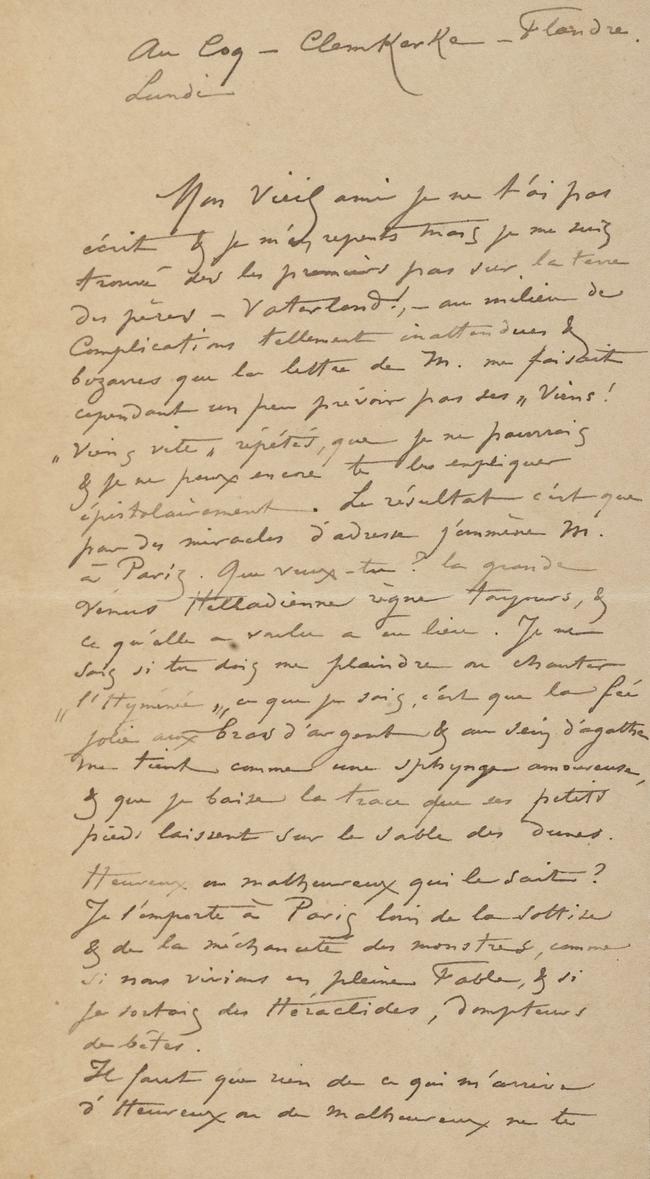 Au Coq – ClemKerKe – Flandre.
Lundi
Mon Vieil ami je ne t'ai pas
écrit & je m'en repents mais je me suis
trouvé dès les premiers pas sur la terre
des pères – Vaterland! – au milieu de
Complications tellement inattendues &
bizarres que la lettre de M. me faisait
cependant un peu prévoir par ses „Viens!
„Viens vite„ répétés, que je ne pourrais
& je ne peux encore te les expliquer
épistolairement. Le résultat c'est que
par des miracles d'adresse j'emmène M.
à Paris. Que veux-tu? la grande
Vénus Helladienne règne toujours, &
ce qu'elle a voulu a eu lieu. Je ne
sais si tu dois me plaindre ou chanter
„l'Hyménée„, ce que je sais, c'est que la fée
jolie aux bras d'argent & au sein d'agathe
me tient comme une sphynge amoureuse,
& que je baise la trace que ses petits
pieds laissent sur le sable des dunes.
Heureux ou malheureux qui le sait?
Je l'emporte à Paris loin de la sottise
& de la méchanceté des monstres, comme
si nous vivions en pleine Fable, & si
je sortais des Héraclides, dompteurs
de bêtes.
Il faut que rien de ce qui m'arrive
d'Heureux ou de malheureux ne te